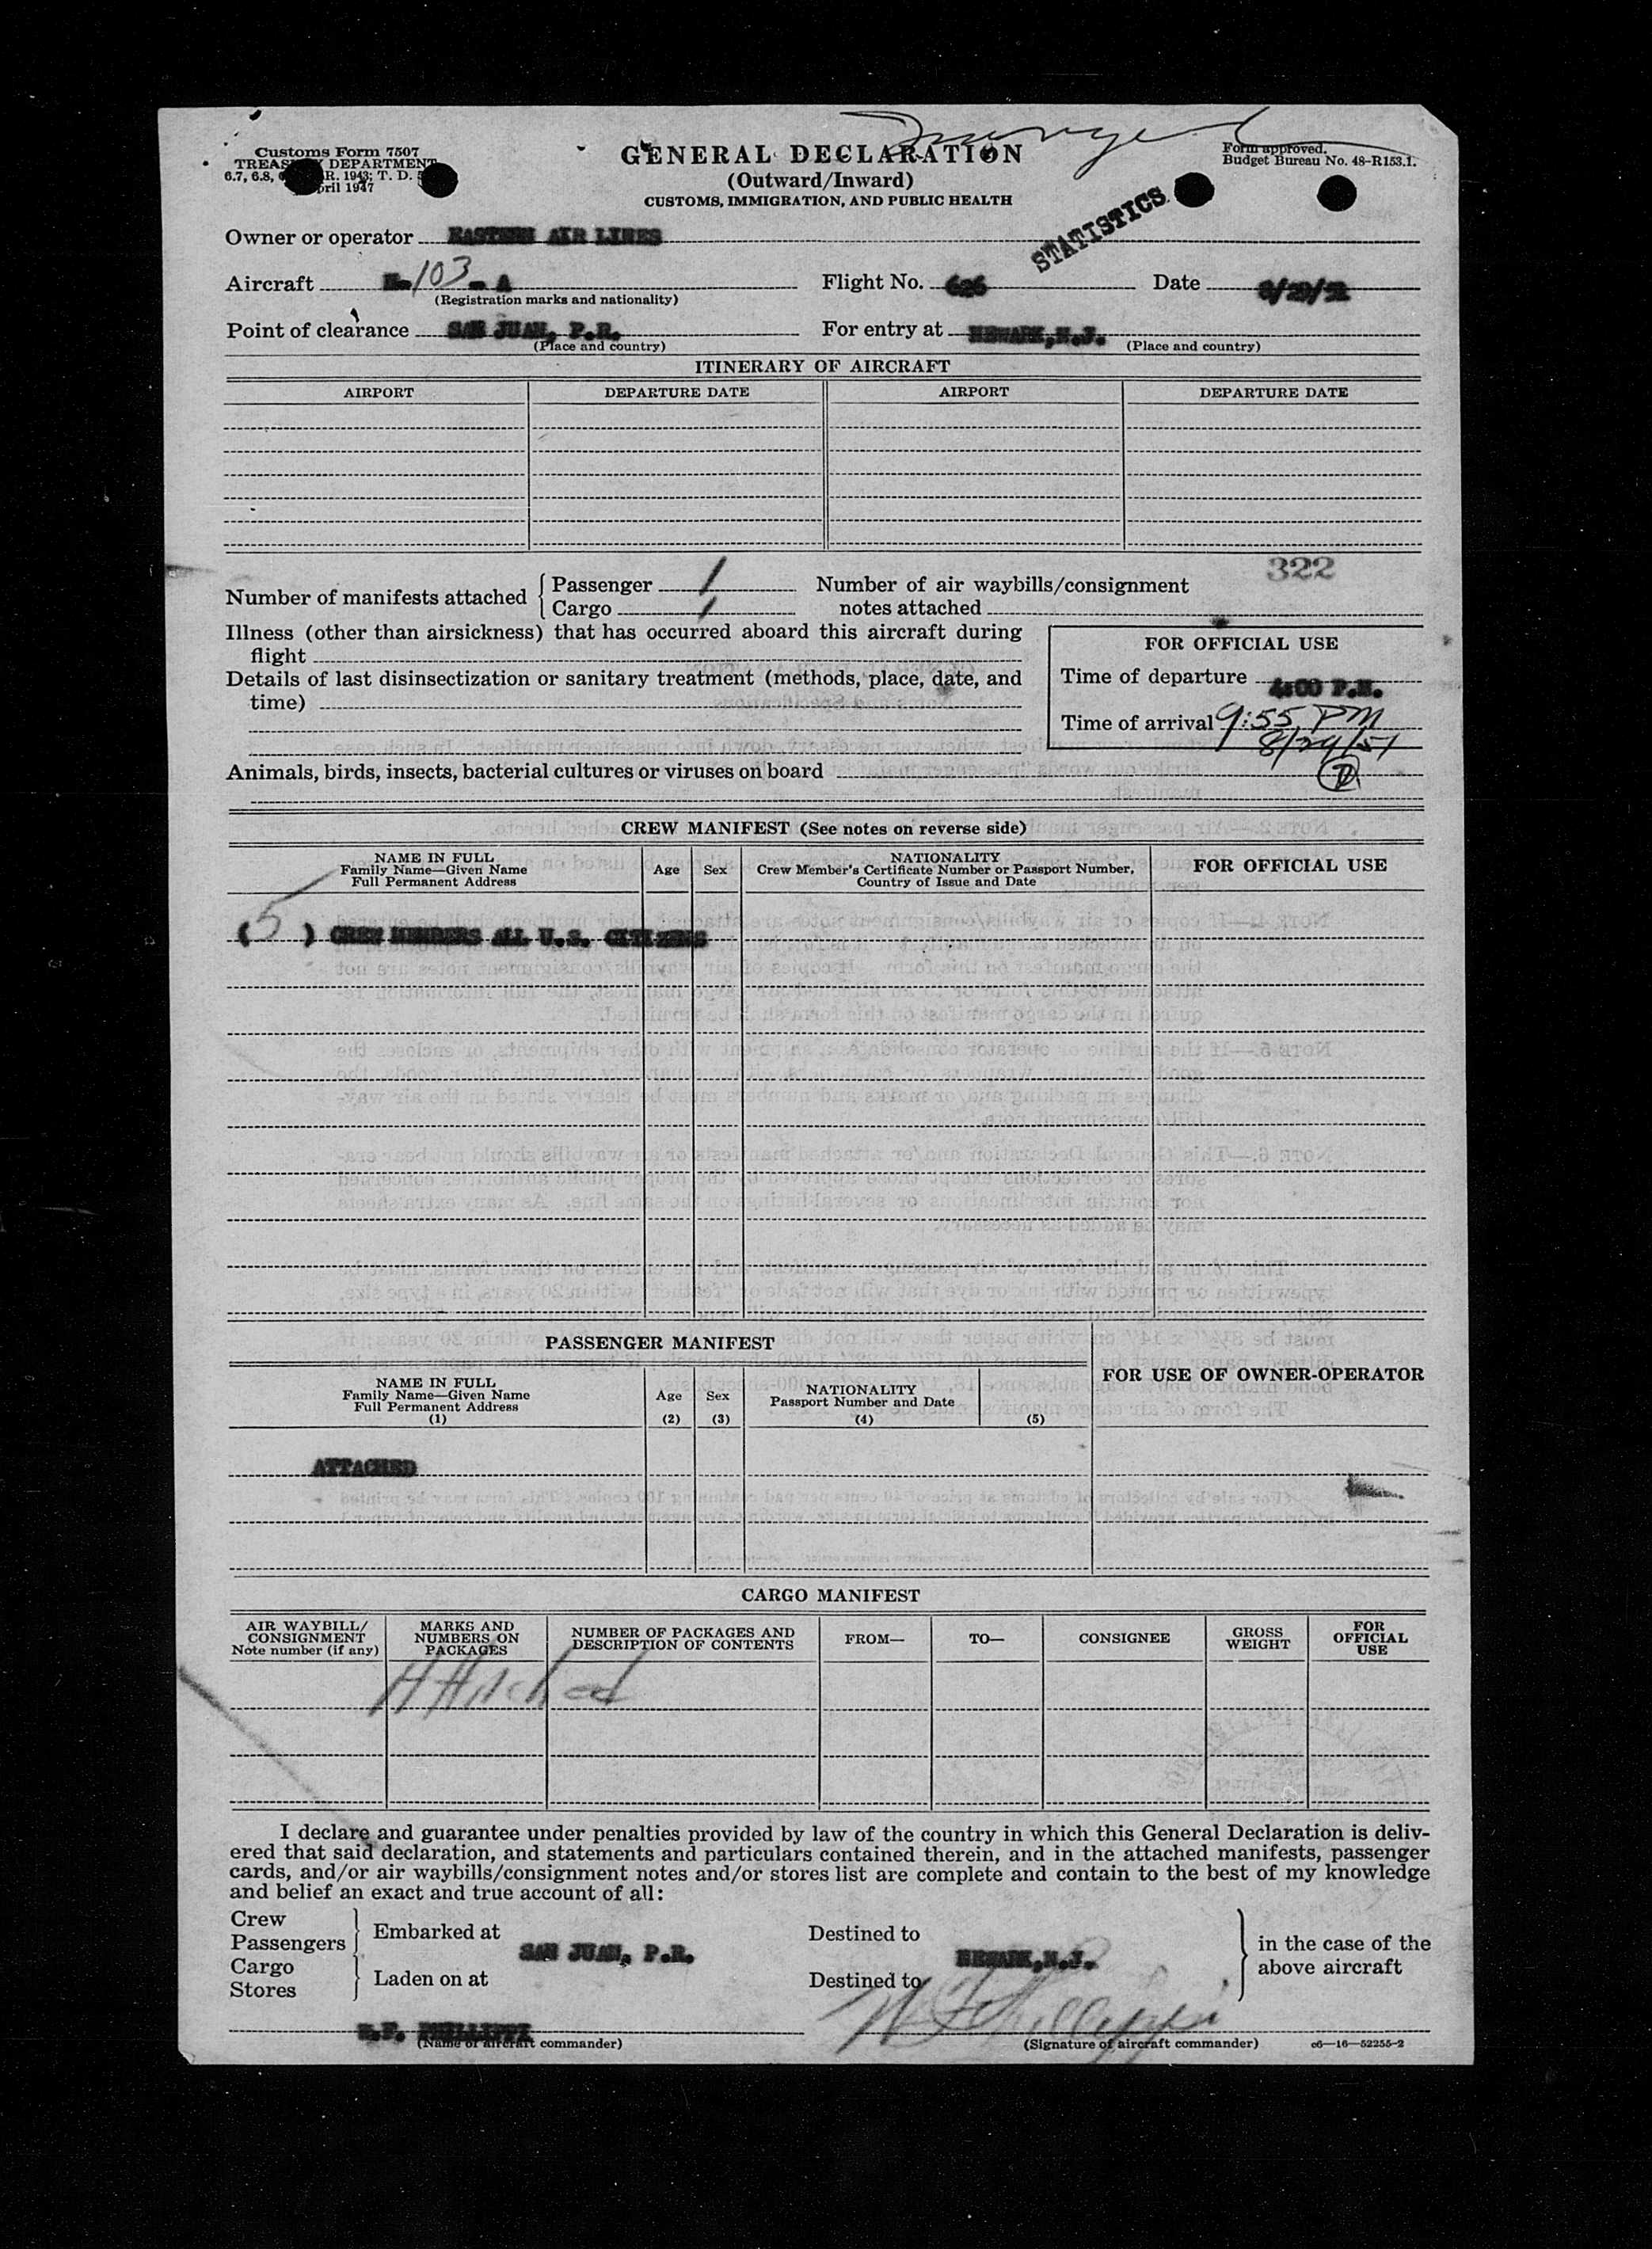 Customs Form 7507
TREASURY DEPARTMENT
6.7, 6.8, R. 1943; T. D.
April 1947
GENERAL DECLARATION
(Outward/Inward)
CUSTOMS, IMMIGRATION, AND PUBLIC HEALTH
Form approved.
Budget Bureau No. 48-R153.1.
STATISTICS
Owner or operator EASTERN AIR LINES
Aircraft N-103-A Flight No. 626 Date 8/29/51
(Registration marks and nationality)
Point of clearance SAN JUAN, P.R. For entry at NEWARK, N.J.
(Place and country) (Place and country)
ITINERARY OF AIRCRAFT
AIRPORT DEPARTURE DATE AIRPORT DEPARTURE DATE
322
Number of manifests attached { Passenger 1 Number of air waybills/consignment
Cargo 1 notes attached
Illness (other than airsickness) that has occurred aboard this aircraft during
flight
Details of last disinsectization or sanitary treatment (methods, place, date, and
time)
FOR OFFICIAL USE
Time of departure 4:00 P.M.
Time of arrival 9:55 PM
8/29/51
Animals, birds, insects, bacterial cultures or viruses on board
CREW MANIFEST (See notes on reverse side)
NAME IN FULL
Family Name—Given Name
Full Permanent Address
Age Sex
NATIONALITY
Crew Member's Certificate Number or Passport Number,
Country of Issue and Date
FOR OFFICIAL USE
( 5 ) CREW MEMBERS ALL U.S. CITIZENS
PASSENGER MANIFEST
NAME IN FULL
Family Name—Given Name
Full Permanent Address
(1)
Age
(2)
Sex
(3)
NATIONALITY
Passport Number and Date
(4)
(5)
FOR USE OF OWNER-OPERATOR
ATTACHED
CARGO MANIFEST
AIR WAYBILL/
CONSIGNMENT
Note number (if any)
MARKS AND
NUMBERS ON
PACKAGES
NUMBER OF PACKAGES AND
DESCRIPTION OF CONTENTS
FROM—
TO—
CONSIGNEE
GROSS
WEIGHT
FOR
OFFICIAL
USE
Attached
I declare and guarantee under penalties provided by law of the country in which this General Declaration is deliv-
ered that said declaration, and statements and particulars contained therein, and in the attached manifests, passenger
cards, and/or air waybills/consignment notes and/or stores list are complete and contain to the best of my knowledge
and belief an exact and true account of all:
Crew
Passengers
Cargo
Stores
Embarked at
SAN JUAN, P.R.
Laden on at
Destined to
NEWARK, N.J.
Destined to
in the case of the
above aircraft
W.F. PHILLIPPI
(Name of aircraft commander)
W F Phillippi
(Signature of aircraft commander)
c6—16—52255-2